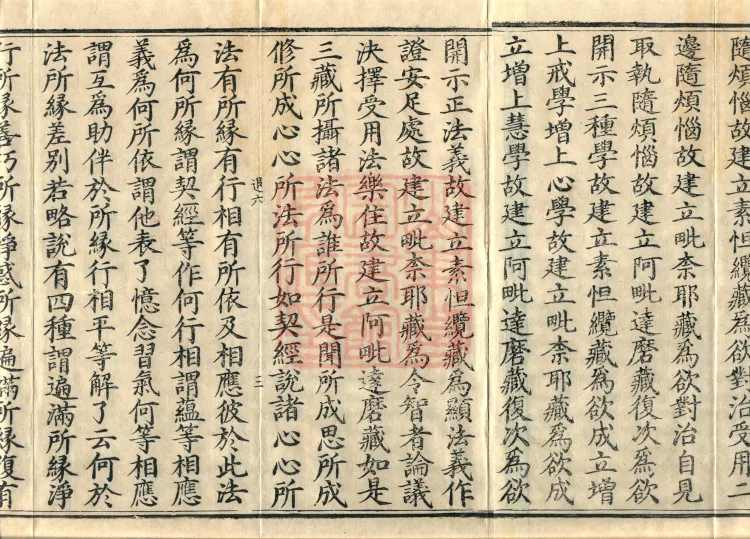 隨煩惱故建立素怛纜藏爲欲對治受用二
邊隨煩惱故建立毗柰耶藏爲欲對治自見
取執隨煩惱故建立阿毗達磨藏復次爲欲
開示三種學故建立素怛纜藏爲欲成立增
上戒學增上心學故建立毗柰耶藏爲欲成
立增上慧學故建立阿毗達磨藏復次爲欲
開示正法義故建立素怛纜藏爲顯法義作
證安足處故建立毗柰耶藏爲令智者論議
決擇受用法樂住故建立阿毗達磨藏如是
三藏所攝諸法爲誰所行是聞所成思所成
修所成心心所法所行如契經說諸心心所
退六 三
法有所緣有行相有所依及相應彼於此法
爲何所緣謂契經等作何行相謂蘊等相應
義爲何所依謂他表了憶念習氣何等相應
謂互爲助伴於所緣行相平等解了云何於
法所緣差別若略說有四種謂遍滿所緣淨
行所緣善巧所緣淨惑所緣遍滿所緣復有